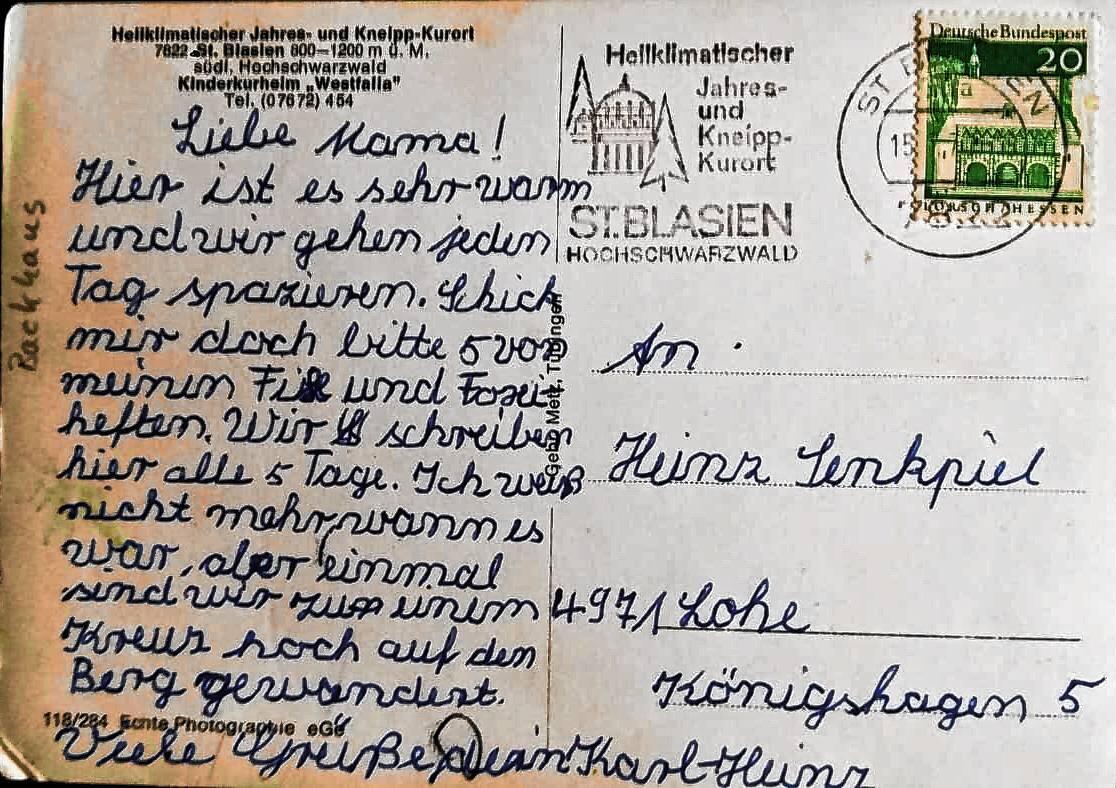 Heilklimatischer Jahres- und Kneipp-Kurort
7822 St. Blasien 800—1200 m ü. M.
südl. Hochschwarzwald
Kinderkurheim „Westfalia"
Tel. (07672) 454
Liebe Mama!
Hier ist es sehr warm
und wir gehen jeden
Tag spazieren. Schick
mir doch bitte 5 von
meinen Fix und Foxi-
heften. Wir schreiben
hier alle 5 Tage. Ich weiß
nicht mehr, wann es
war, aber einmal
sind wir zum einem
Kreuz hoch auf den
Berg gewandert.
118/284 Echte Photographie
Viele Greiße, Dein Karl-Heinz
Backhaus
Gebr. Metz, Tübingen
Heilklimatischer
Jahres-
und
Kneipp-
Kurort
ST. BLASIEN
HOCHSCHWARZWALD
ST
EN
15
Deutsche Bundespost
20
LORSCH HESSEN
An
Heinz Senkpiel
4971 Lohe
Königshagen 5